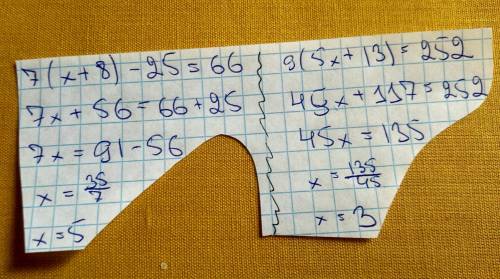 7(x+8)-25=66
7x+56=66+25
7x=91-56
x=35/7
x=5
9(5x+13)=252
45x+117=252
45x=135
x=135/45
x=3